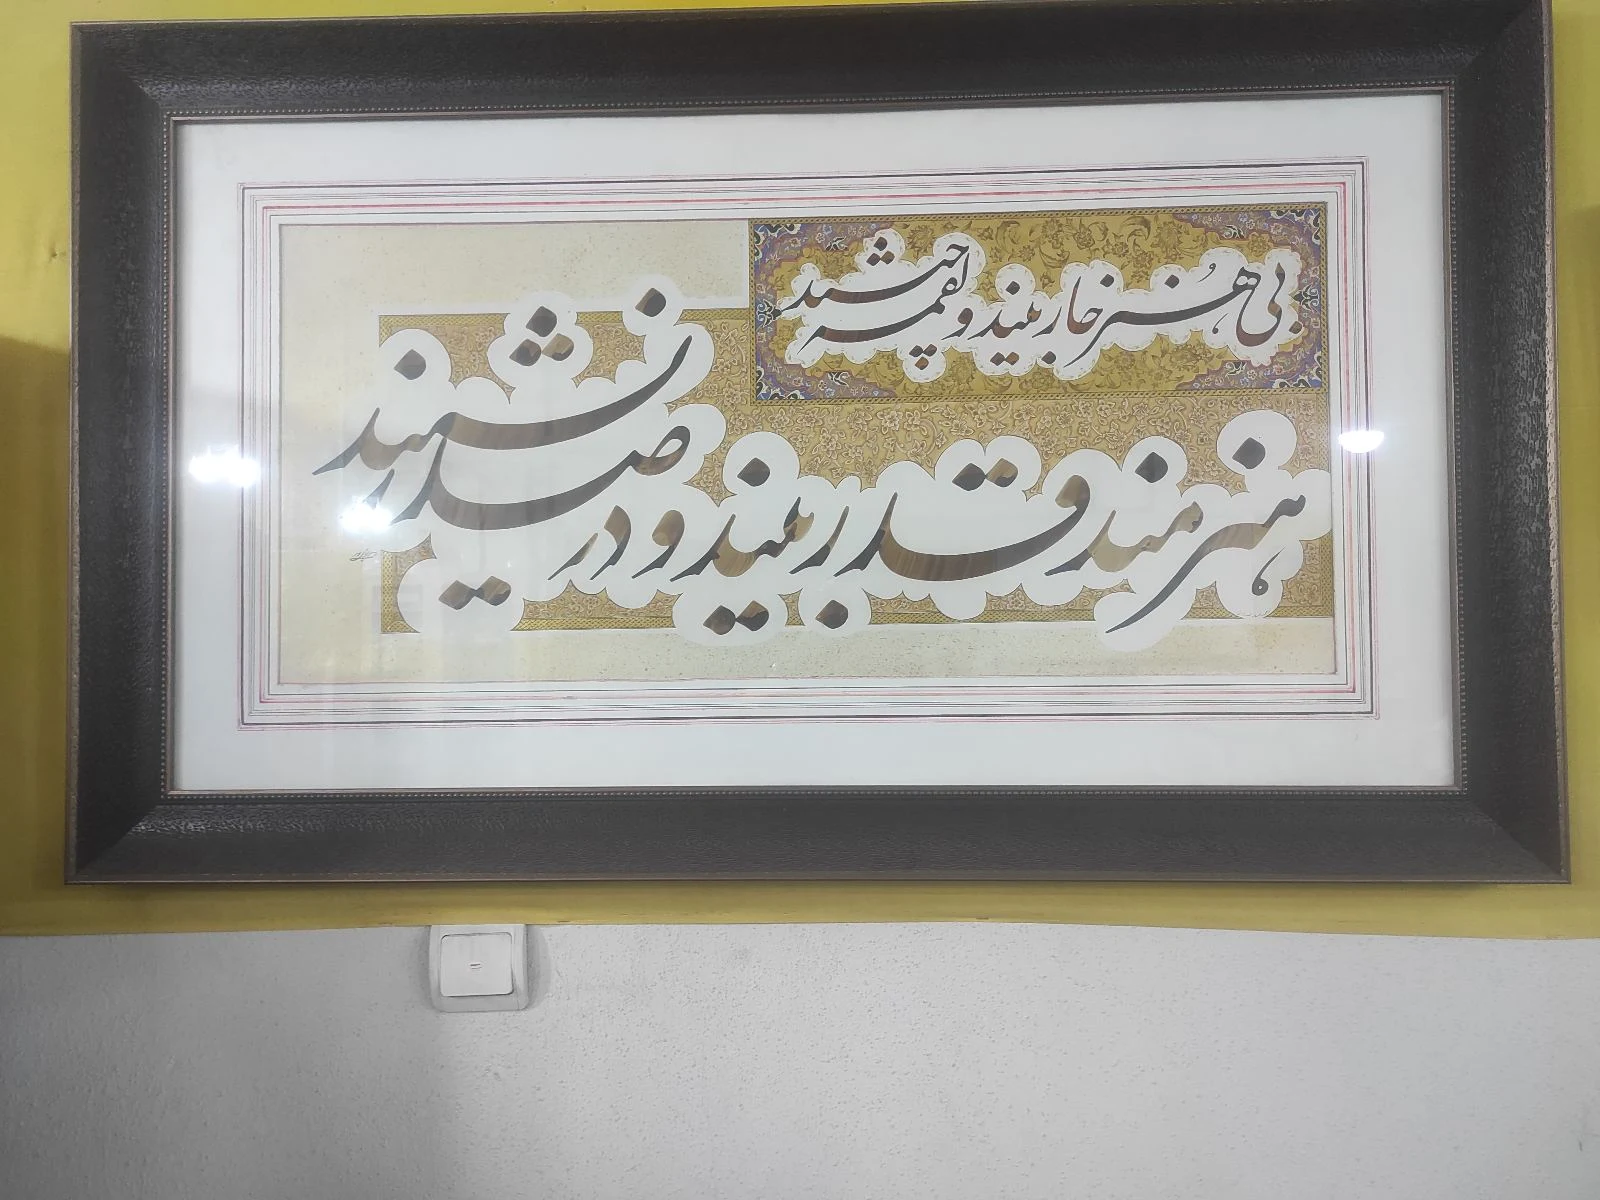 بی هنر خار بیند و لقمه چیند
هنرمند قدر بیند و در صدر نشیند